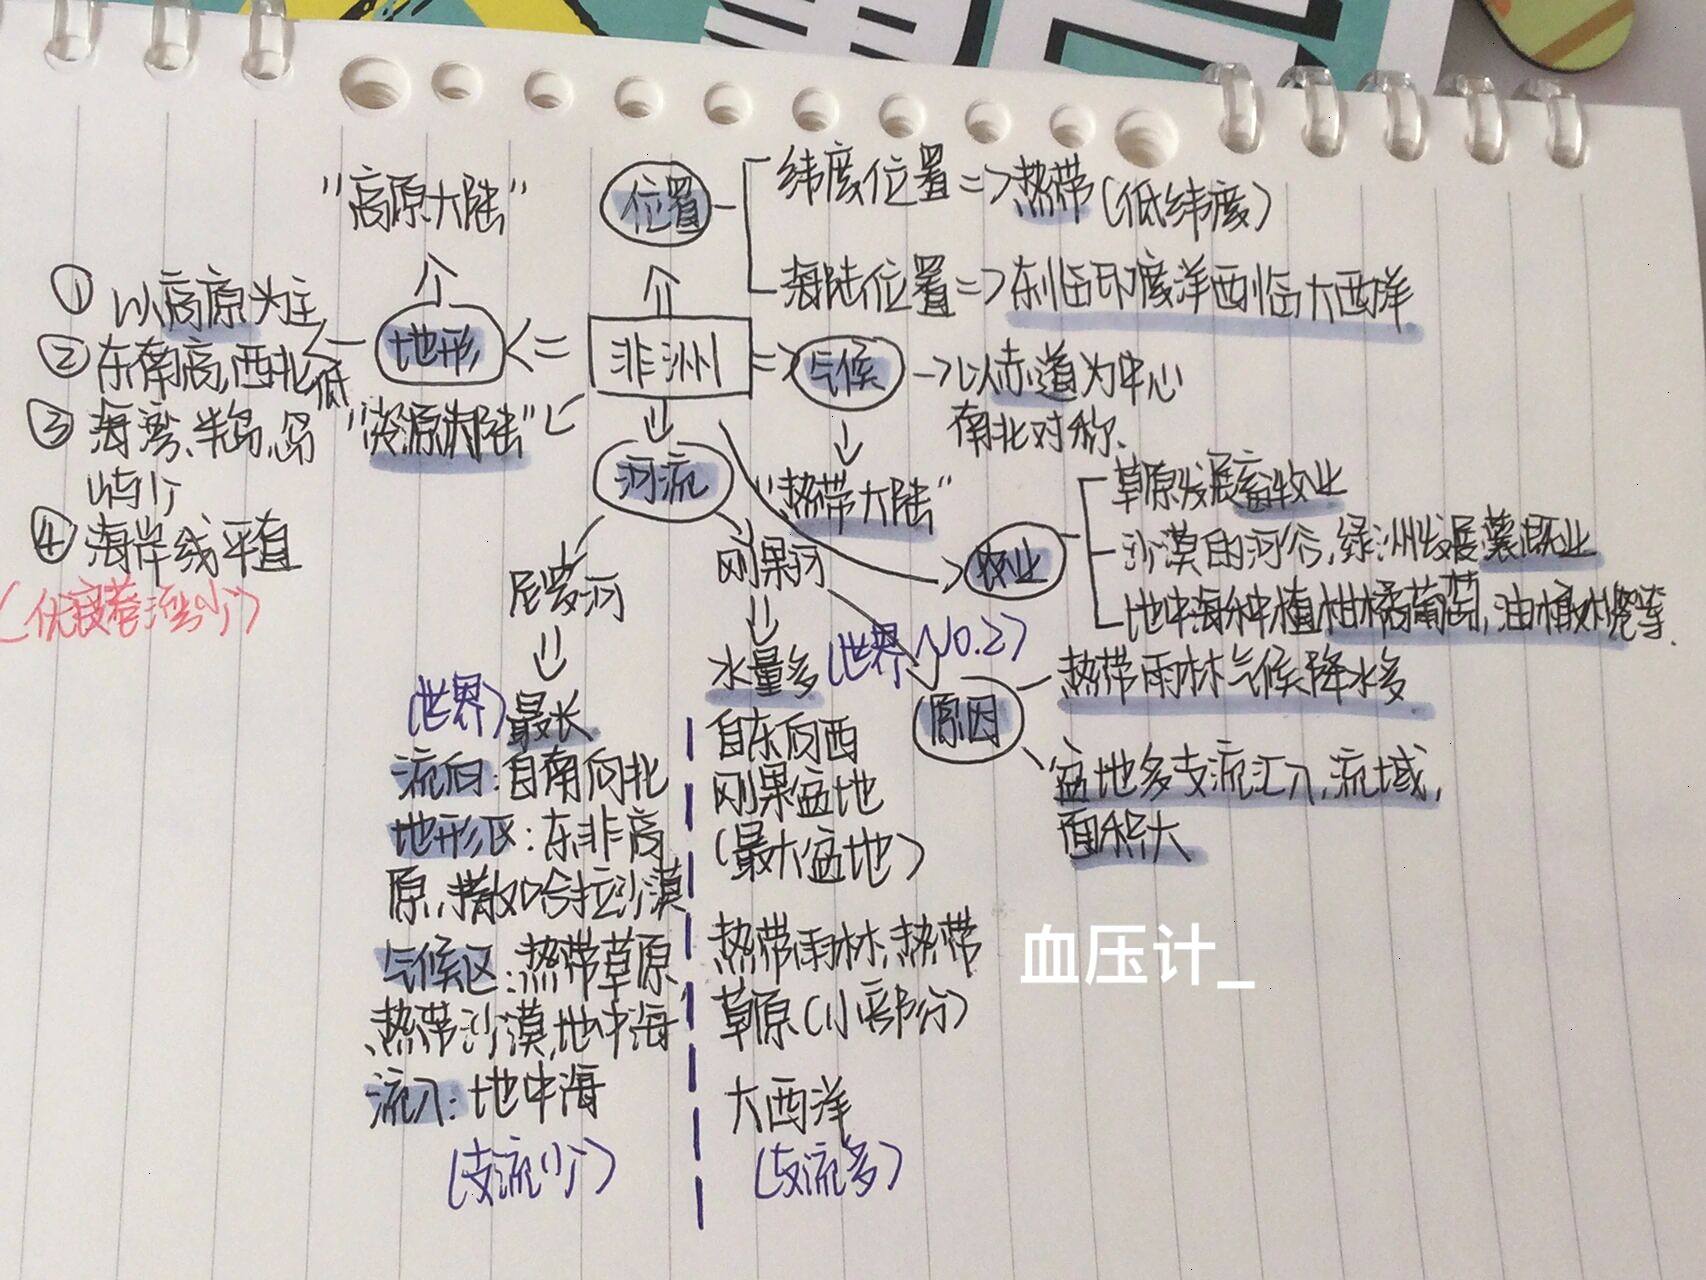 "高原大陆"
位置
纬度位置=>热带(低纬度)
海陆位置=>东临印度洋西临大西洋
① 以高原为主
② 东南高,西北低
③ 海湾、半岛、岛
屿少
④ 海岸线平直
地形
非洲
气候
以赤道为中心
南北对称、
"热带大陆"
河流
尼罗河
刚果河
农业
草原发展畜牧业
沙漠的河谷,绿洲发展灌溉业
地中海种植柑橘葡萄,油橄榄等.
(世界)最长
流向:自南向北
地形区:东非高
原,撒哈拉沙漠
气候区:热带草原
热带沙漠,地中海
流入:地中海
(支流少)
水量多(世界NO.2)
自东向西
刚果盆地
(最大盆地)
热带雨林,热带
草原(小部分)
大西洋
(支流多)
原因
热带雨林气候降水多
盆地多支流汇入,流域,
面积大
血压计_